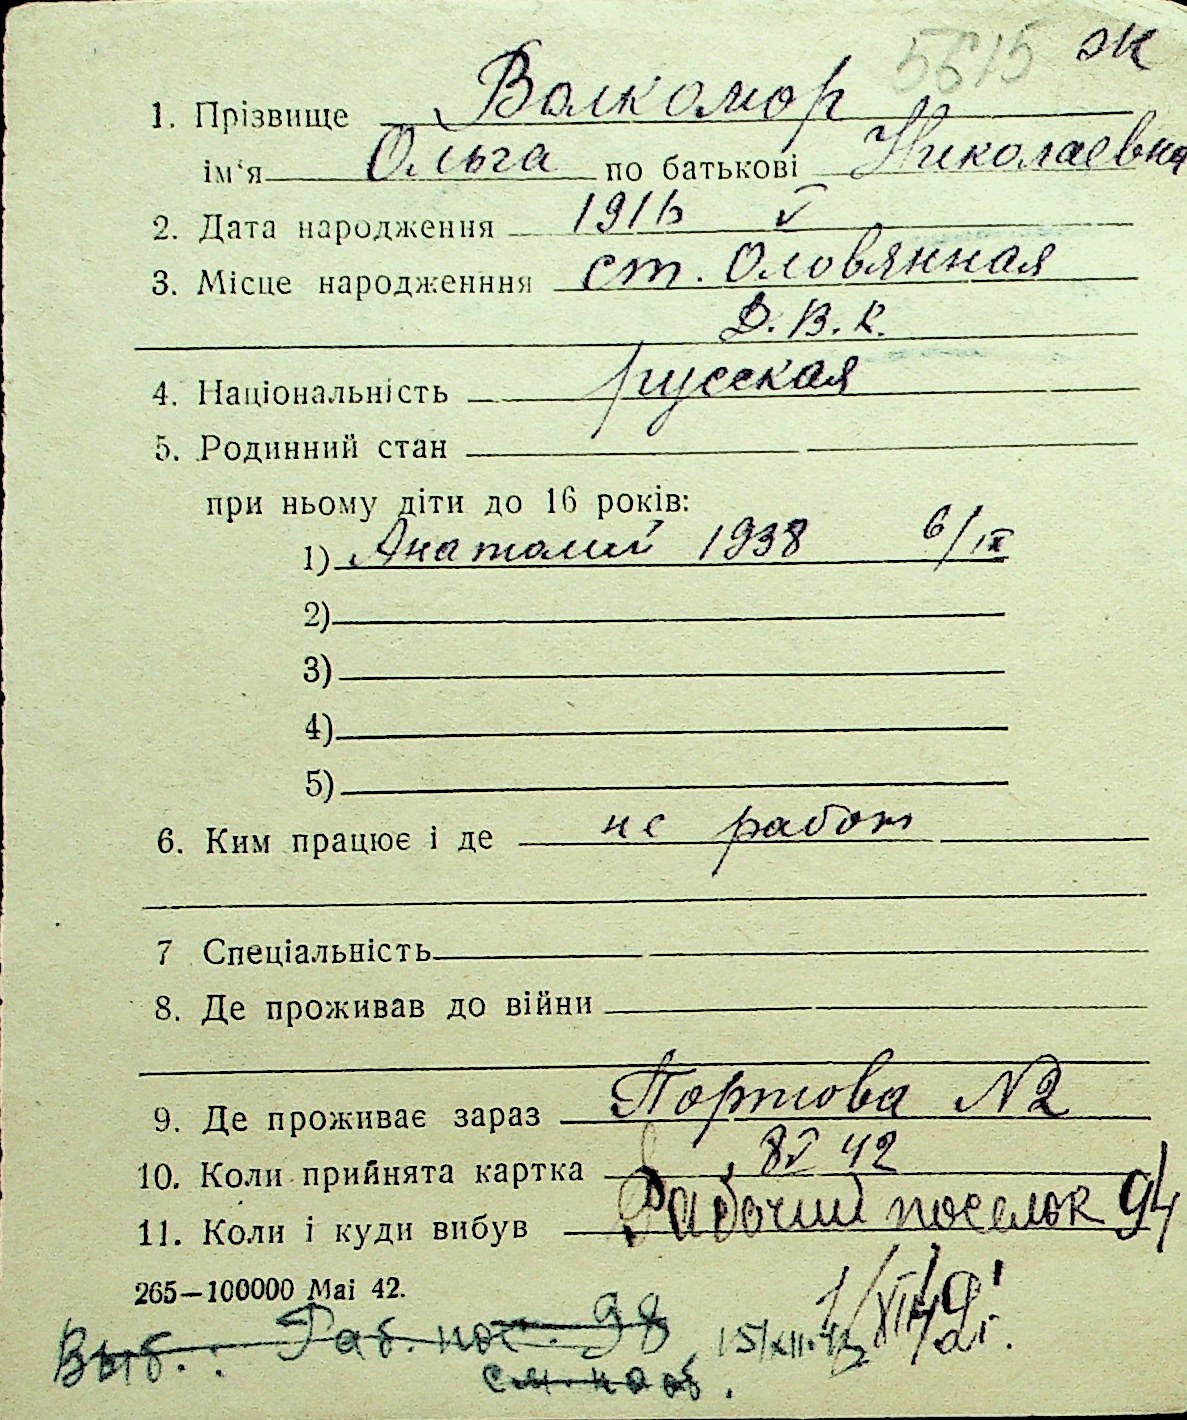 5615 Ж
1. Прізвище Волкомор
ім‘я Ольга по батькові Николаевна
2. Дата народження 1916 V
3. Місце народженння ст. Оловянная
Д. В. К.
4. Національність русская
5. Родинний стан
при ньому діти до 16 років:
1) Анатолий 1938 6/IX
2)
3)
4)
5)
6. Ким працює і де не работ
7 Спеціальність
8. Де проживав до війни
9. Де проживає зараз Портова N2
10. Коли прийнята картка 8 V 42
11. Коли і куди вибув Рабочий поселок 94
265—100000 Mai 42.
1/XI 42 г.
Выб.: Раб. пос. 98 15/XII.42
см. на об.